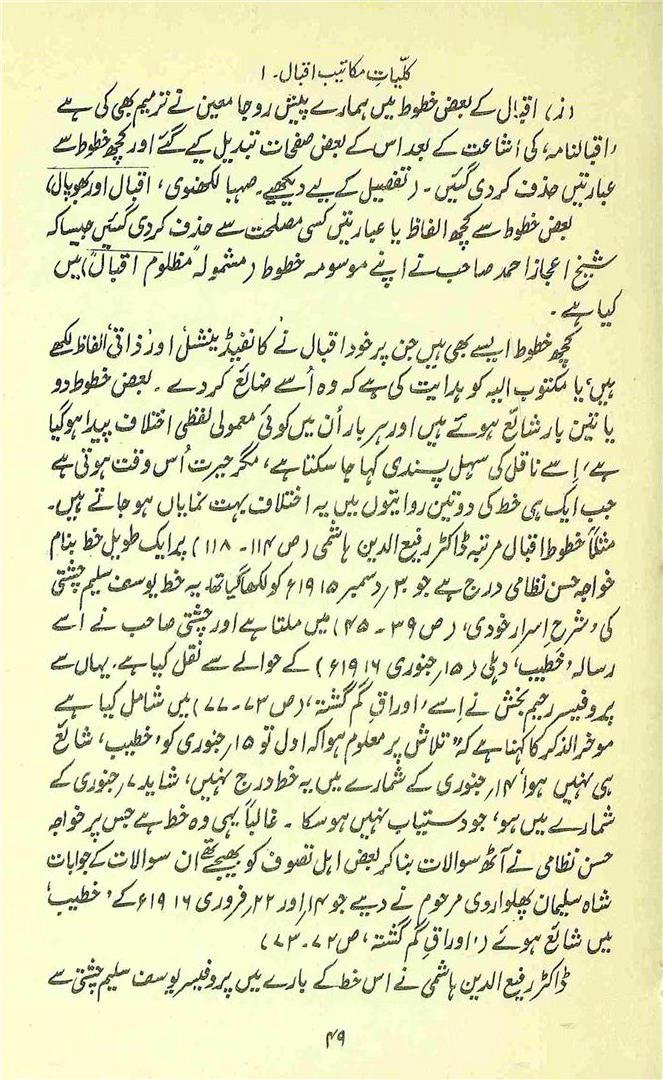 کلّیاتِ مکاتیب اقبال۔ ۱
(ز) اقبال کے بعض خطوط میں ہمارے پیش رو جامعین نے ترمیم بھی کی ہے
'اقبالنامہ' کی اشاعت کے بعد اس کے بعض صفحات تبدیل کیے گئے اور کچھ خطوط سے
عبارتیں حذف کر دی گئیں۔ (تفصیل کے لیے دیکھیے۔ صہبا لکھنوی، اقبال اور بھوپال)
بعض خطوط سے کچھ الفاظ یا عبارتیں کسی مصلحت سے حذف کر دی گئیں جیسا کہ
شیخ اعجاز احمد صاحب نے اپنے موسومہ خطوط (مشمولہ "مظلوم اقبال") میں
کیا ہے۔
کچھ خطوط ایسے بھی ہیں جن پر خود اقبال نے 'کانفیڈینشل' اور 'ذاتی' الفاظ لکھے
ہیں، یا مکتوب الیہ کو ہدایت کی ہے کہ وہ اُسے ضائع کر دے۔ بعض خطوط دو
یا تین بار شائع ہوئے ہیں اور ہر بار اُن میں کوئی معمولی لفظی اختلاف پیدا ہو گیا
ہے، اِسے ناقل کی سہل پسندی کہا جا سکتا ہے، مگر حیرت اُس وقت ہوتی ہے
جب ایک ہی خط کی دو تین روایتوں میں یہ اختلاف بہت نمایاں ہو جاتے ہیں۔
مثلاً خطوط اقبال مرتبہ ڈاکٹر رفیع الدین ہاشمی (ص ۱۱۴۔ ۱۱۸) پر ایک طویل خط بنام
خواجہ حسن نظامی درج ہے جو ۳۰ دسمبر ۱۹۱۵ء کو لکھا گیا تھا۔ یہ خط یوسف سلیم چشتی
کی 'شرح اسرار خودی' (ص ۳۹۔ ۴۵) میں ملتا ہے اور چشتی صاحب نے اسے
رسالہ 'خطیب' دہلی (۱۵ جنوری ۱۹۱۶ء) کے حوالے سے نقل کیا ہے۔ یہاں سے
پروفیسر رحیم بخش نے اِسے 'اوراقِ گم گشتہ' (ص ۷۳۔ ۷۷) میں شامل کیا ہے
موخر الذکر کا کہنا ہے کہ "تلاش پر معلوم ہوا کہ اول تو ۱۵ جنوری کو 'خطیب' شائع
ہی نہیں ہوا، ۱۴ جنوری کے شمارے میں یہ خط درج نہیں، شاید ۷ جنوری کے
شمارے میں ہو، جو دستیاب نہیں ہو سکا۔ غالباً یہی وہ خط ہے جس پر خواجہ
حسن نظامی نے آٹھ سوالات بنا کر بعض اہل تصوف کو بھیجے تھے ان سوالات کے جوابات
شاہ سلیمان پھلواروی مرحوم نے دیے جو ۱۴ اور ۲۲ فروری ۱۹۱۶ء کے 'خطیب'
میں شائع ہوئے ('اوراقِ گم گشتہ، ص ۷۲۔ ۷۳)
ڈاکٹر رفیع الدین ہاشمی نے اس خط کے بارے میں پروفیسر یوسف سلیم چشتی سے
۴۹